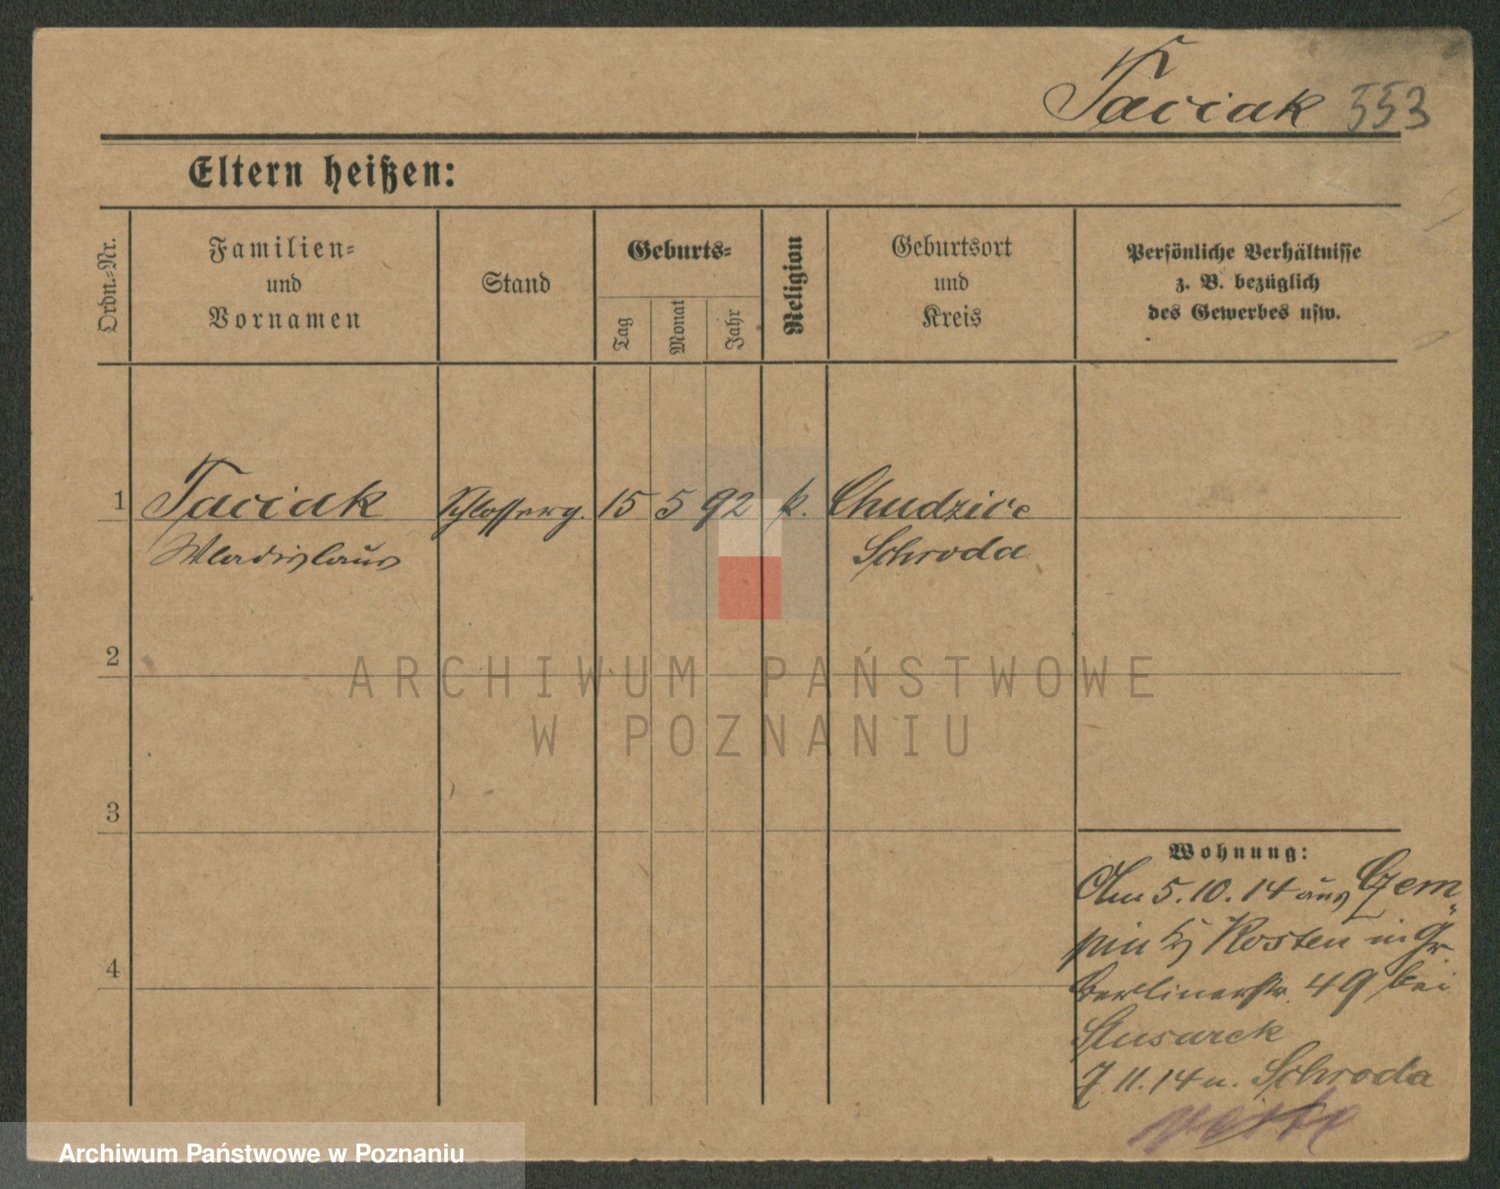 Taciak 553
Eltern heißen:
Ordn.-Nr.
Familien-
und
Vornamen
Stand
Geburts-
Tag
Monat
Jahr
Religion
Geburtsort
und
Kreis
Persönliche Verhältnisse
z. B. bezüglich
des Gewerbes usw.
1 Taciak Schlosserg. 15 5 92 k. Chudzice
Wladislaus Schroda
2
3
4
Wohnung:
Am 5.10.14 aus Gem-
pin Kr Kosten in Gr.
Berlinerstr. 49 bei
Slusarek
7.11.14 n. Schroda
ARCHIWUM PAŃSTWOWE
W POZNANIU
Archiwum Państwowe w Poznaniu